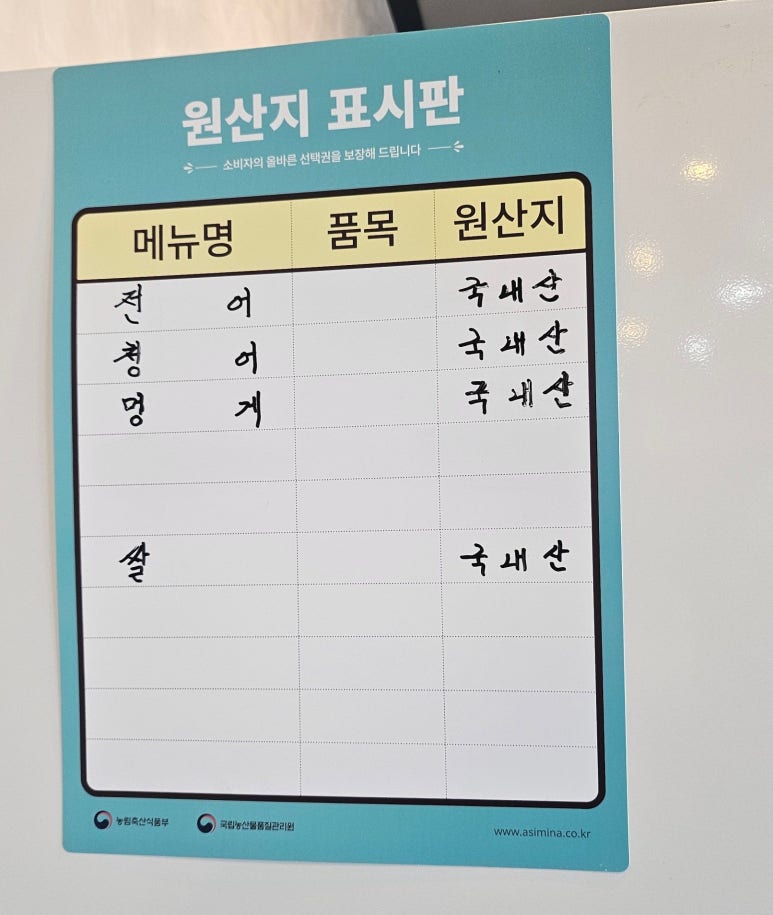 원산지 표시판
소비자의 올바른 선택권을 보장해 드립니다
메뉴명 품목 원산지
전어 국내산
청어 국내산
멍게 국내산
쌀 국내산
농림축산식품부 국립농산물품질관리원 www.asimina.co.kr